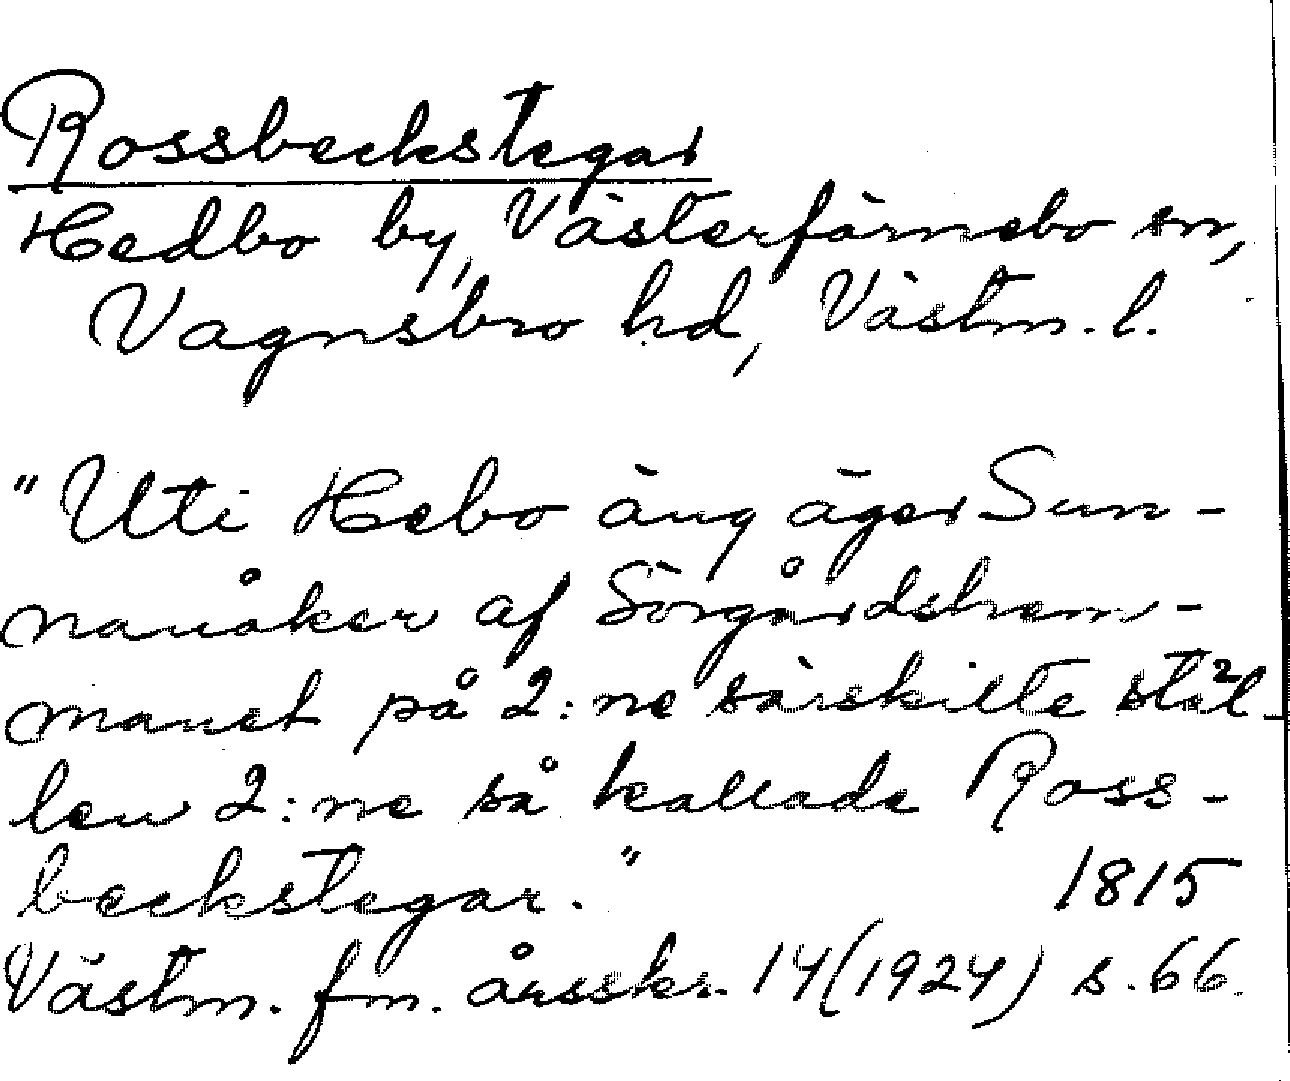 Rossbeckstegar
Hedbo by, Västerfärnebo sn,
Vagnsbro hd, Västm. l.
"Uti Hebo äng äger Sun-
nanåker af Sörgårdshem-
manet på 2:ne särskilte stäl-
len 2:ne så kallade Ross-
beckstegar." 1815
Västm. fm. årsskr. 14 (1924) s. 66.